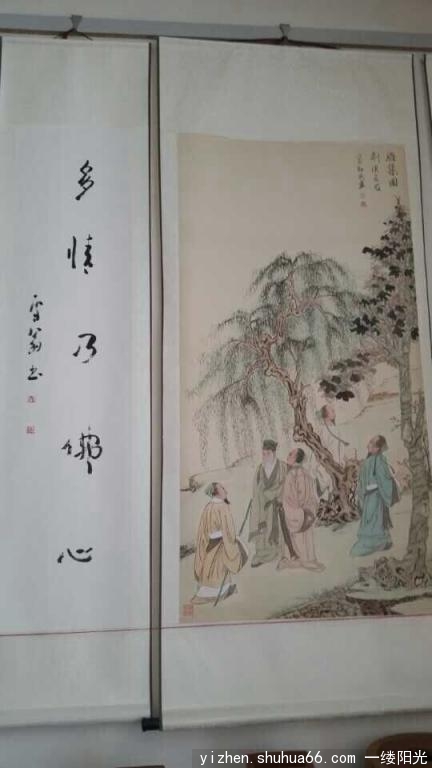 多情乃佛心
雪翁书
雅集图
yizhen.shuhua66.com 一缕阳光